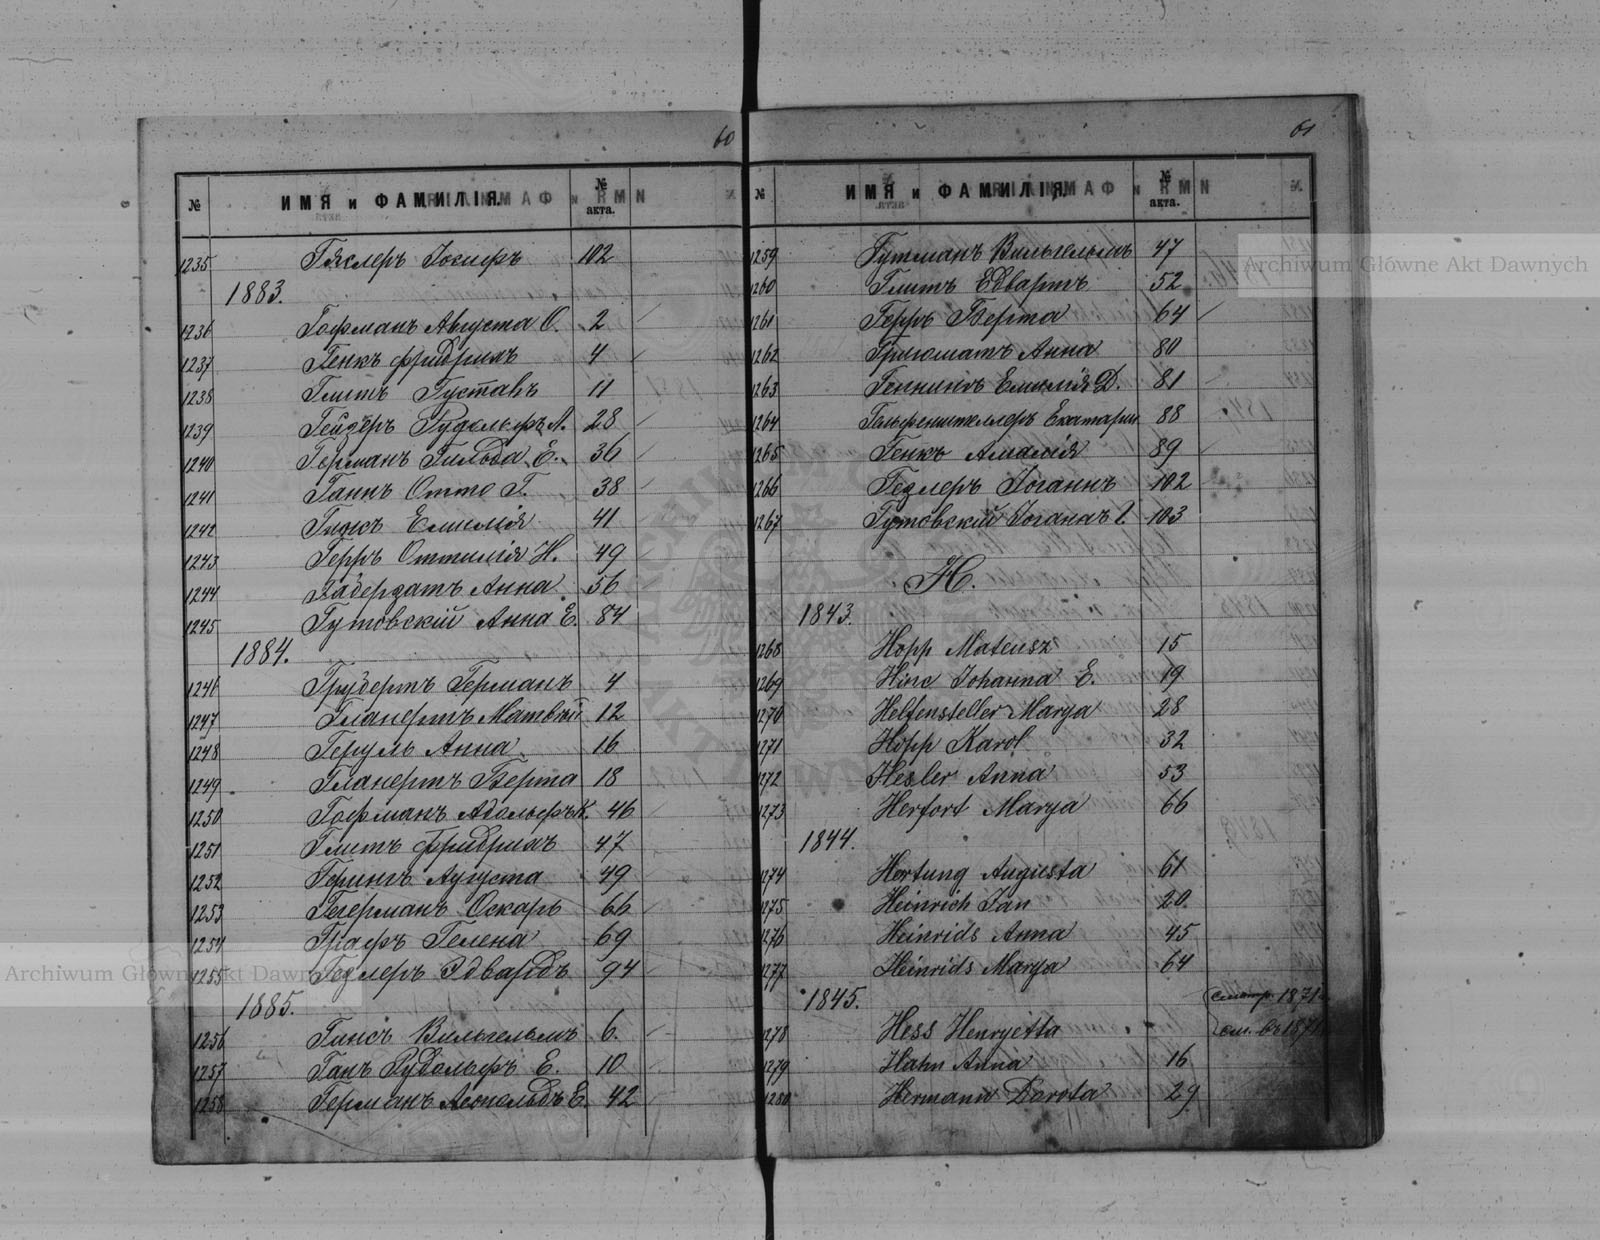 60
№ ИМЯ и ФАМИЛІЯ. № акта.
1235 Гяслеръ Іосифъ 102
1883.
1236 Гофманъ Августа О. 2
1237 Генкъ Фридрихъ 4
1238 Глитъ Густавъ 11
1239 Гейзеръ Рудольфъ А. 28
1240 Германъ Гильда Е. 36
1241 Ганнъ Отто Г. 38
1242 Емилія 41
1243 Герръ Оттилія Н. 49
1244 Анна 56
1245 Гутовскій Анна Е. 84
1884.
1246 Грубертъ Германъ 4
1247 Гланертъ Матвѣй 12
1248 Геруль Анна 16
1249 Гланертъ Берта 18
1250 Гофманъ Адольфъ К. 46
1251 Глитъ Фридрихъ 47
1252 Герингъ Аугуста 49
1253 Гегерманъ Оскаръ 66
1254 Графъ Гелена 69
1255 Гезлеръ Эдвардъ 94
1885.
1256 Гинсъ Вильгельмъ 6.
1257 Ганъ Рудольфъ Е. 10
1258 Германъ Леопольдъ Е. 42
61
№ ИМЯ и ФАМИЛІЯ. № акта.
1259 Гутманъ Вильгельмъ 47
1260 Глитъ Едвартъ 52
1261 Герръ Берта 64
1262 Анна 80
1263 Геннингъ Емилія Д. 81
1264 Гельфенштеллеръ Екатарин 88
1265 Генкъ Амалія 89
1266 Гезлеръ Іоганнъ 102
1267 Гутовскій Іоганъ 103
H.
1843.
1268 Hopp Mateusz 15
1269 Hinc Johanna E. 19
1270 Helfensteller Marya 28
1271 Hopp Karol 32
1272 Hesler Anna 53
1273 Herfort Marya 66
1844.
1274 Hortung Augusta 61
1275 Heinrich Jan 20
1276 Heinrids Anna 45
1277 Heinrids Marya 64
1845. смотр. 1871
1278 Hess Henryetta см. въ 1871
1279 Hahn Anna 16
1280 Hermann Dorota 29
Archiwum Główne Akt Dawnych
Archiwum Główne Akt Dawnych